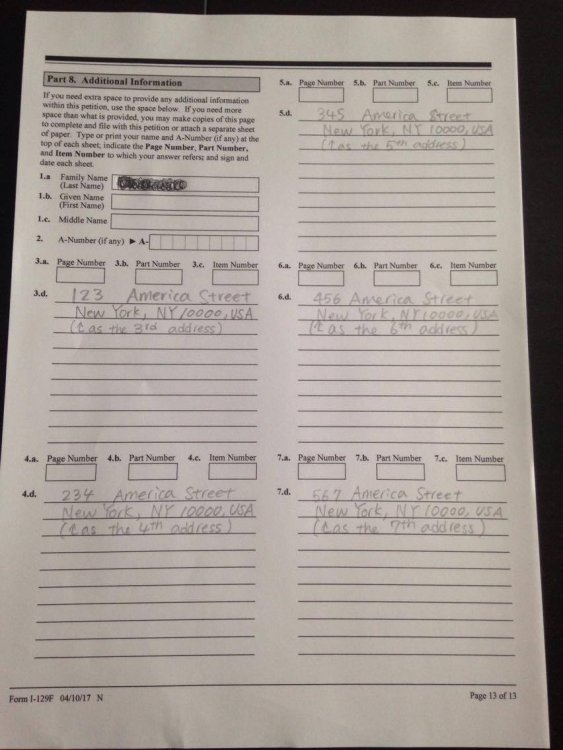 Part 8. Additional Information
If you need extra space to provide any additional information
within this petition, use the space below. If you need more
space than what is provided, you may make copies of this page
to complete and file with this petition or attach a separate sheet
of paper. Type or print your name and A-Number (if any) at the
top of each sheet; indicate the Page Number, Part Number,
and Item Number to which your answer refers; and sign and
date each sheet.
1.a Family Name
(Last Name)
1.b. Given Name
(First Name)
1.c. Middle Name
2. A-Number (if any) ► A-
3.a. Page Number 3.b. Part Number 3.c. Item Number
3.d. 123 America Street
New York, NY 10000, USA
(↑ as the 3rd address)
4.a. Page Number 4.b. Part Number 4.c. Item Number
4.d. 234 America Street
New York, NY 10000, USA
(↑ as the 4th address)
5.a. Page Number 5.b. Part Number 5.c. Item Number
5.d. 345 America Street
New York, NY 10000, USA
(↑ as the 5th address)
6.a. Page Number 6.b. Part Number 6.c. Item Number
6.d. 456 America Street
New York, NY 10000, USA
(↑ as the 6th address)
7.a. Page Number 7.b. Part Number 7.c. Item Number
7.d. 567 America Street
New York, NY 10000, USA
(↑ as the 7th address)
Form I-129F 04/10/17 N
Page 13 of 13